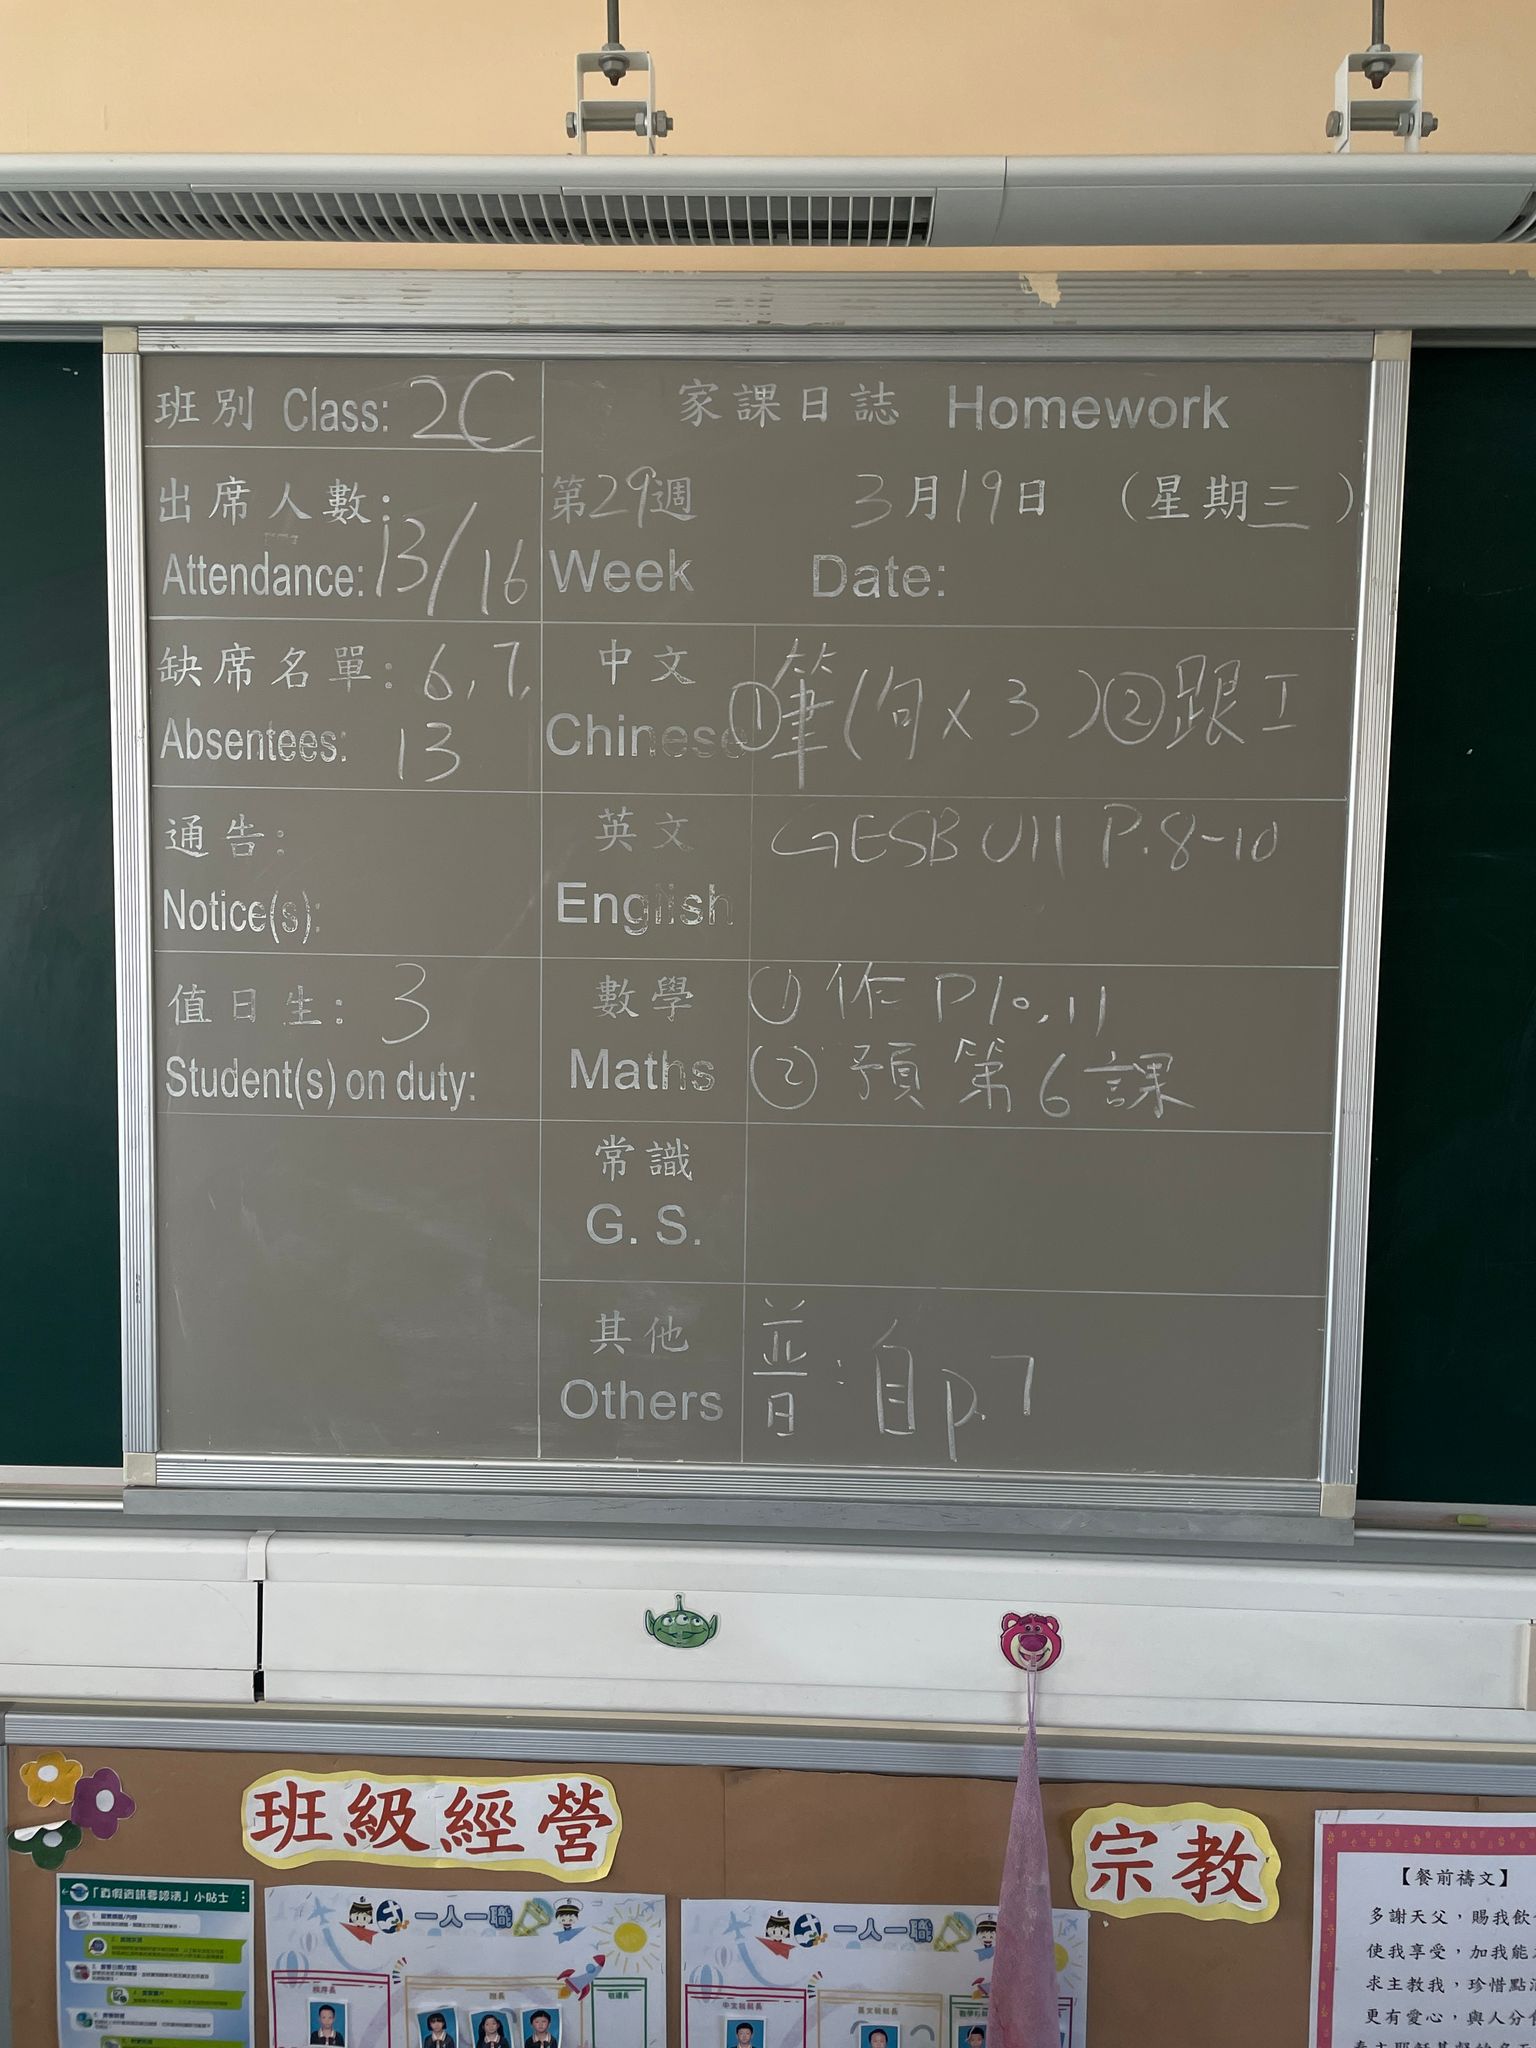 班別 Class: 2C
家課日誌 Homework
出席人數:
Attendance: 13/16
第29週 3月19日 (星期三)
Week Date:
缺席名單: 6, 7,
Absentees: 13
中文
Chinese
①筆(句x3)②跟工
通告:
Notice(s):
英文
English
GESB U11 P.8-10
值日生: 3
Student(s) on duty:
數學
Maths
① 作 P10, 11
② 預第6課
常識
G. S.
其他
Others
普: 自p.7
班級經營
宗教
小貼士
一人一職
一人一職
班長
【餐前禱文】
多謝天父，賜我飲
使我享受，加我能
求主教我，珍惜點
更有愛心，與人分